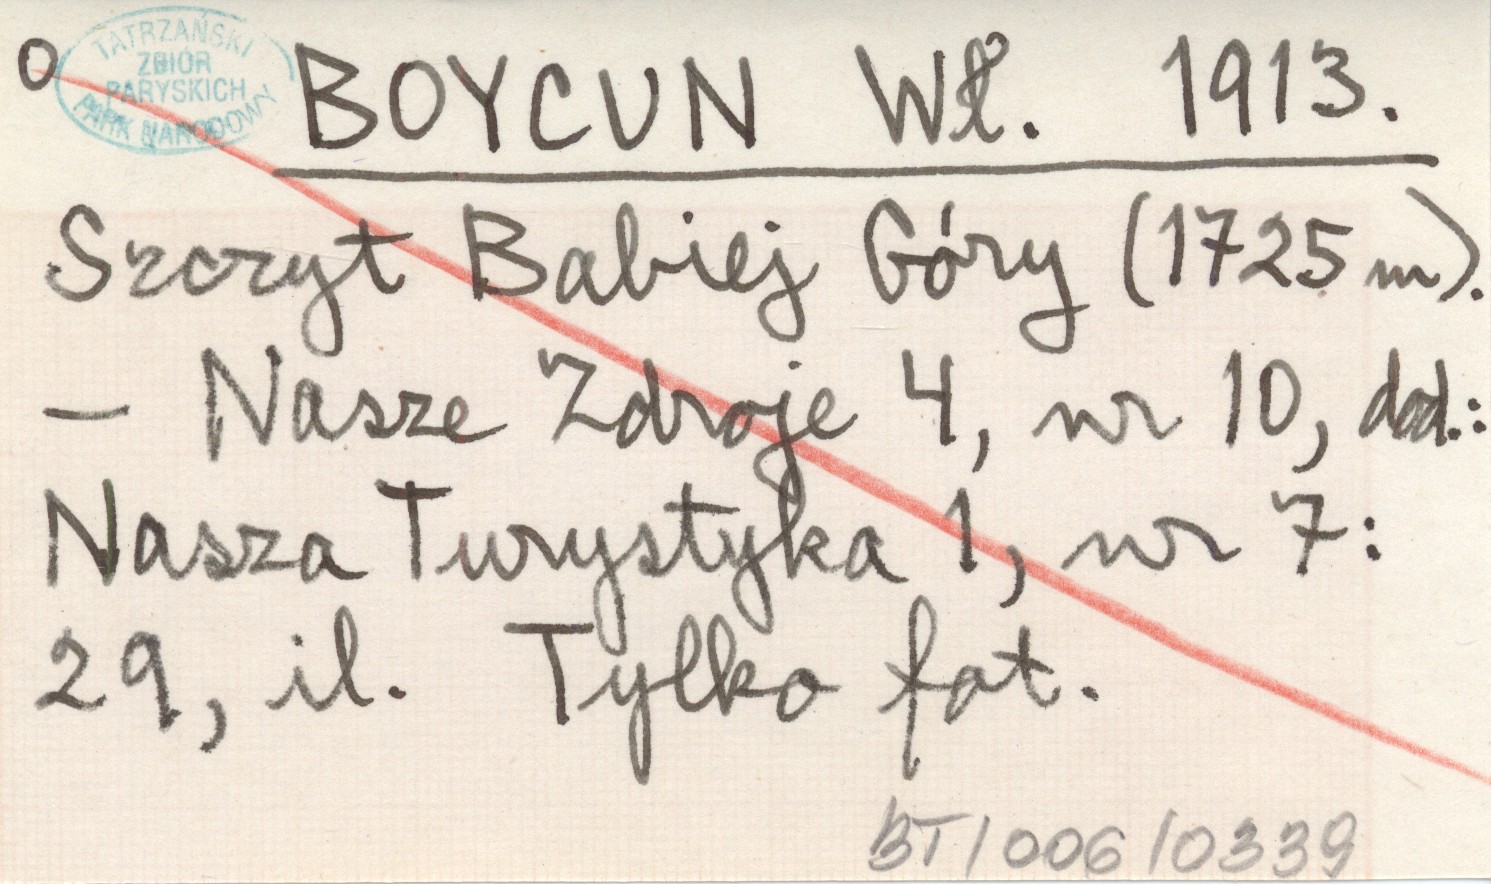 O
TATRZAŃSKI
ZBIÓR
PARYSKICH
PARK NARODOWY
BOYCUN Wł. 1913.
Szczyt Babiej Góry (1725 m).
— Nasze Zdroje 4, nr 10, dod.:
Nasza Turystyka 1, nr 7:
29, il. Tylko fot.
BT/006/0339